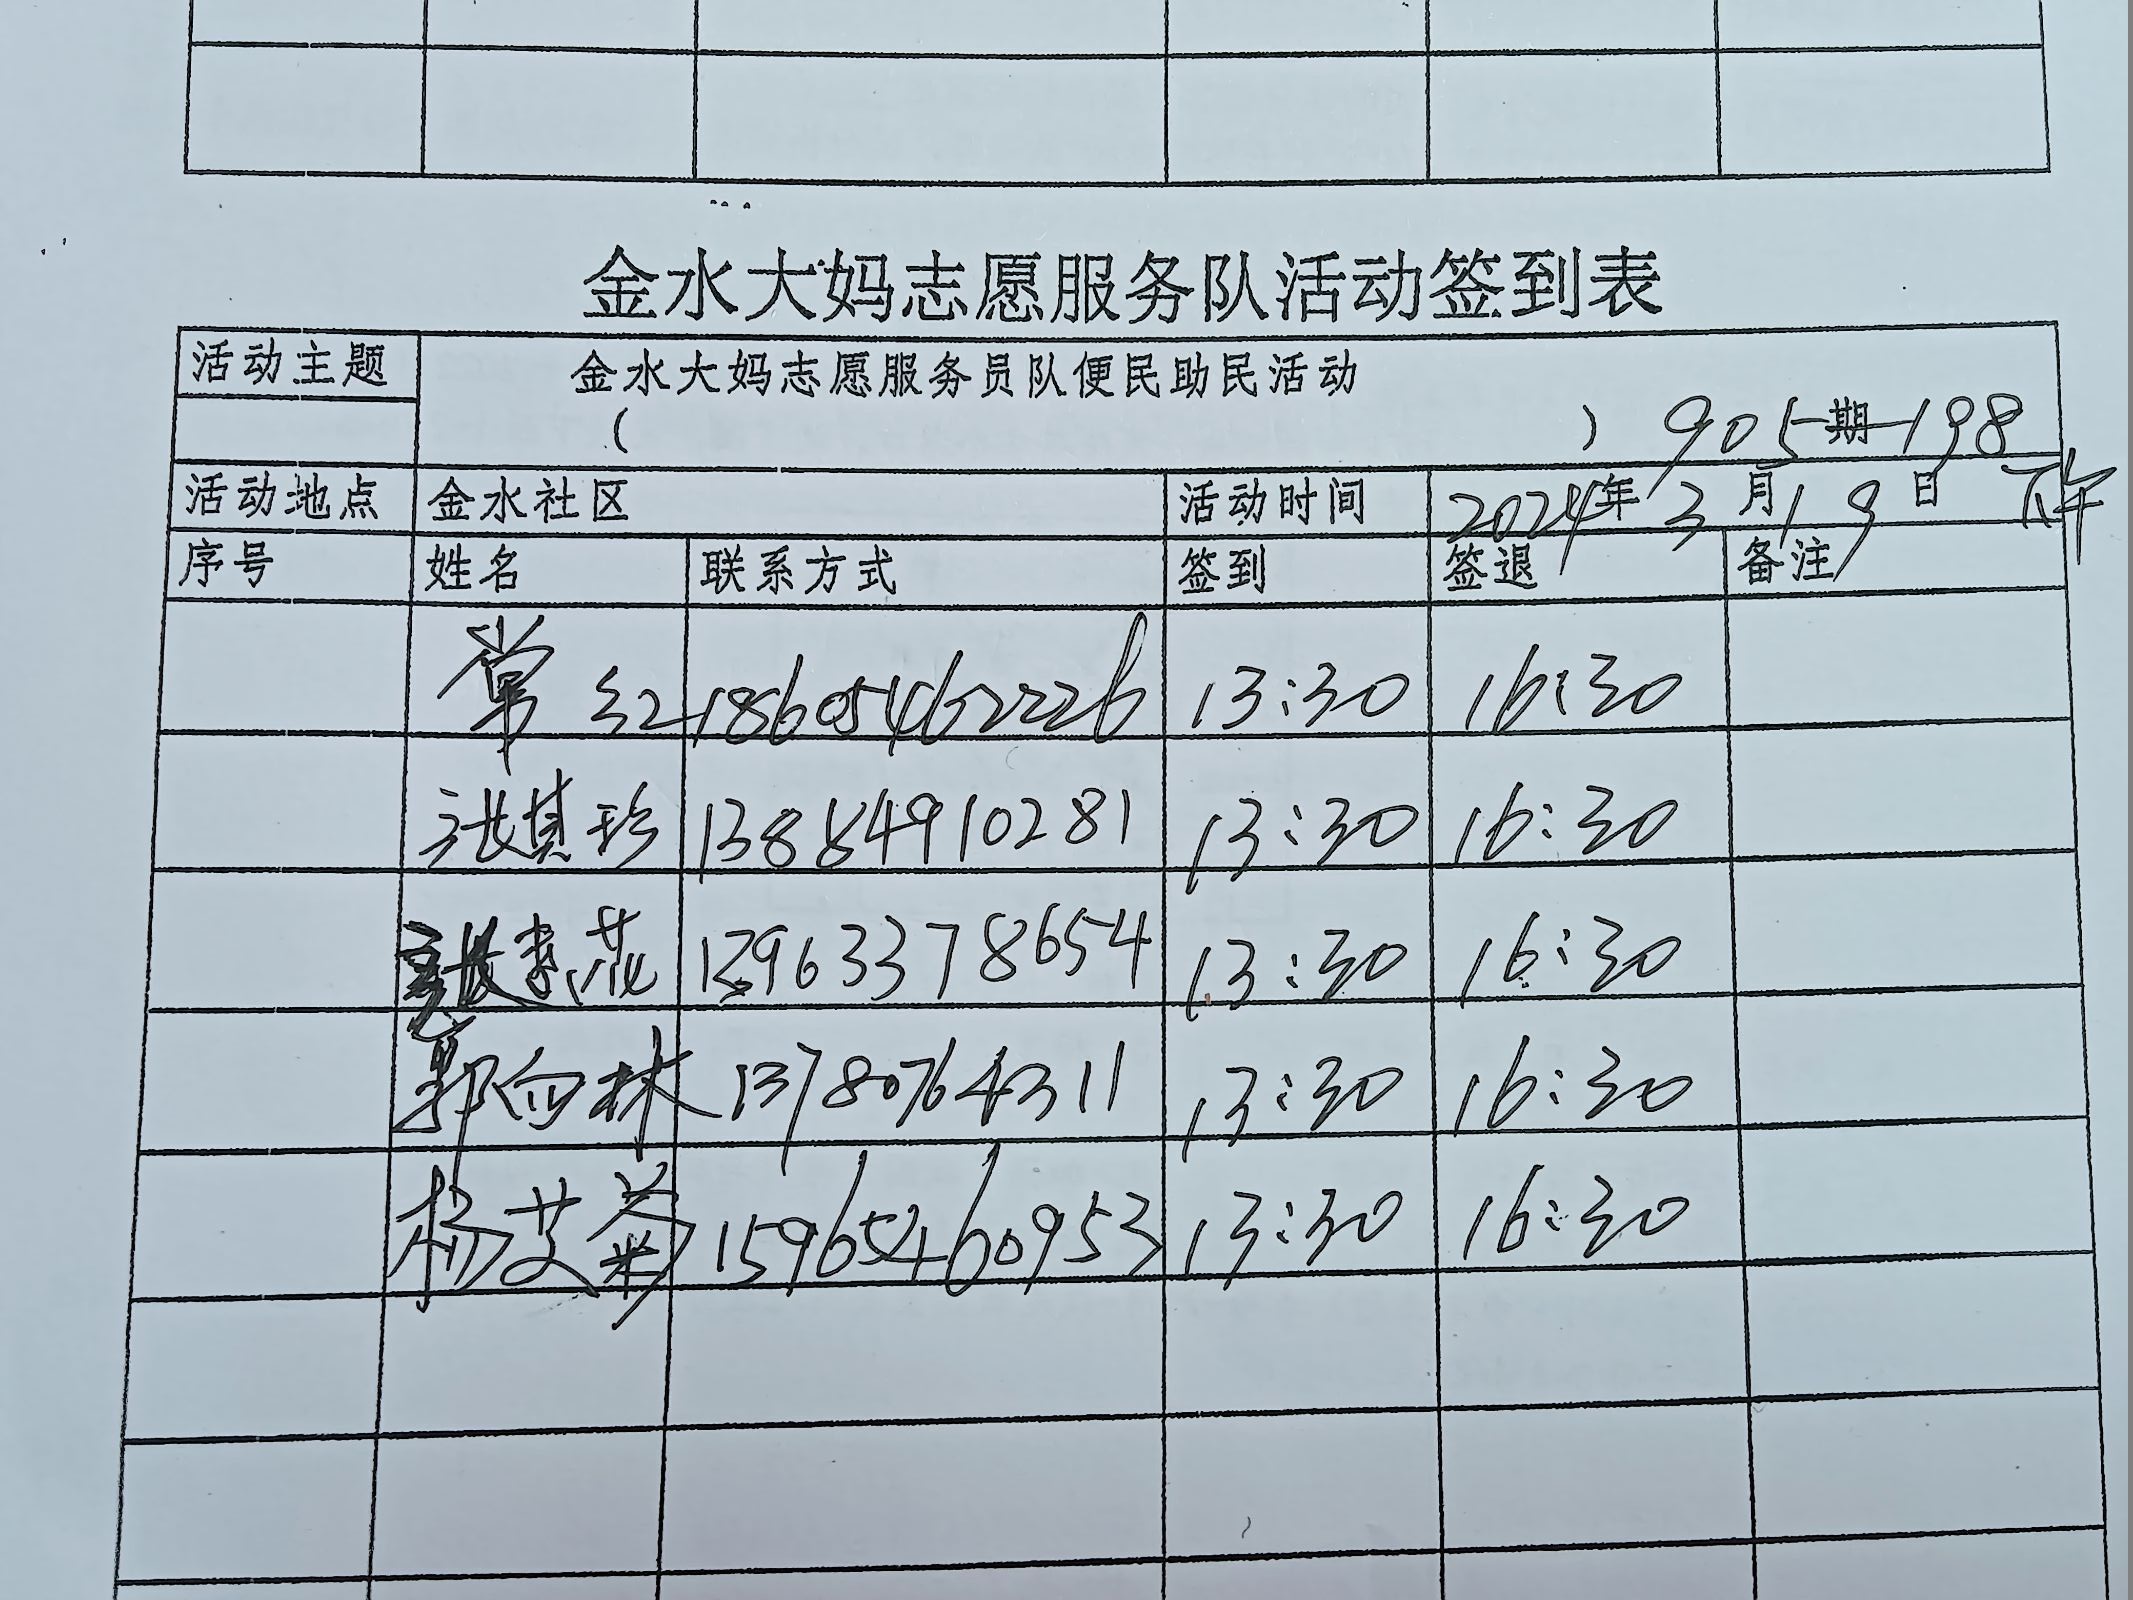 金水大妈志愿服务队活动签到表
活动主题 金水大妈志愿服务员队便民助民活动
( ) 905期-198
活动地点 金水社区 活动时间 2024年3月19日 下午
序号 姓名 联系方式 签到 签退 备注
常红 18605462226 13:30 16:30
张其珍 13884910281 13:30 16:30
张素花 13963378654 13:30 16:30
郭向林 13780764311 13:30 16:30
杨艾菊 15965460953 13:30 16:30